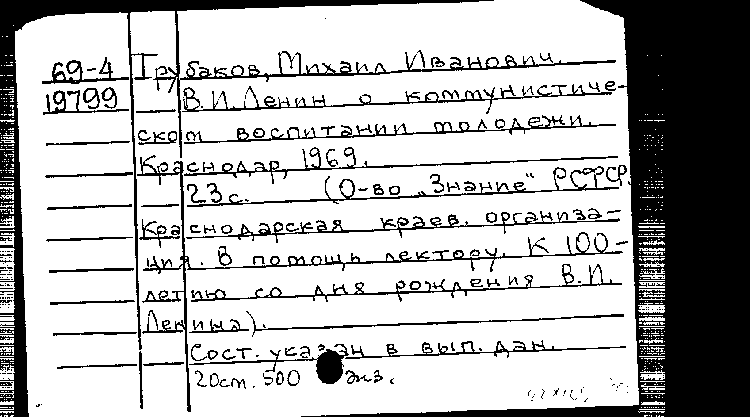 69-4 Трубаков, Михаил Иванович.
19799 В.И.Ленин о коммунистиче-
ском воспитании молодежи.
Краснодар, 1969.
23с. (О-во „Знание" РСФСР.
Краснодарская краев. организа-
ция. В помощь лектору. К 100-
летию со дня рождения В.И.
Ленина).
Сост. указан в вып. дан.
20см. 500 экз.